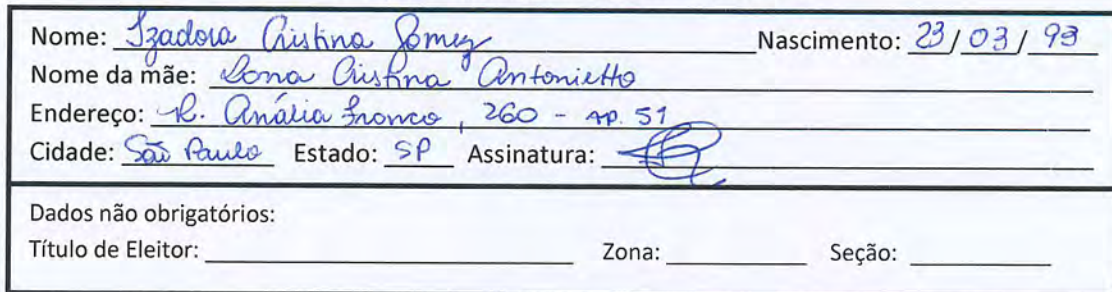 Nome: Izadora Cristina Gomez Nascimento: 23/03/93
Nome da mãe: Sona Cristina Antonietto
Endereço: R. Anália Franco, 260 - AP. 51
Cidade: São Paulo Estado: SP Assinatura:
Dados não obrigatórios:
Título de Eleitor: Zona: Seção: